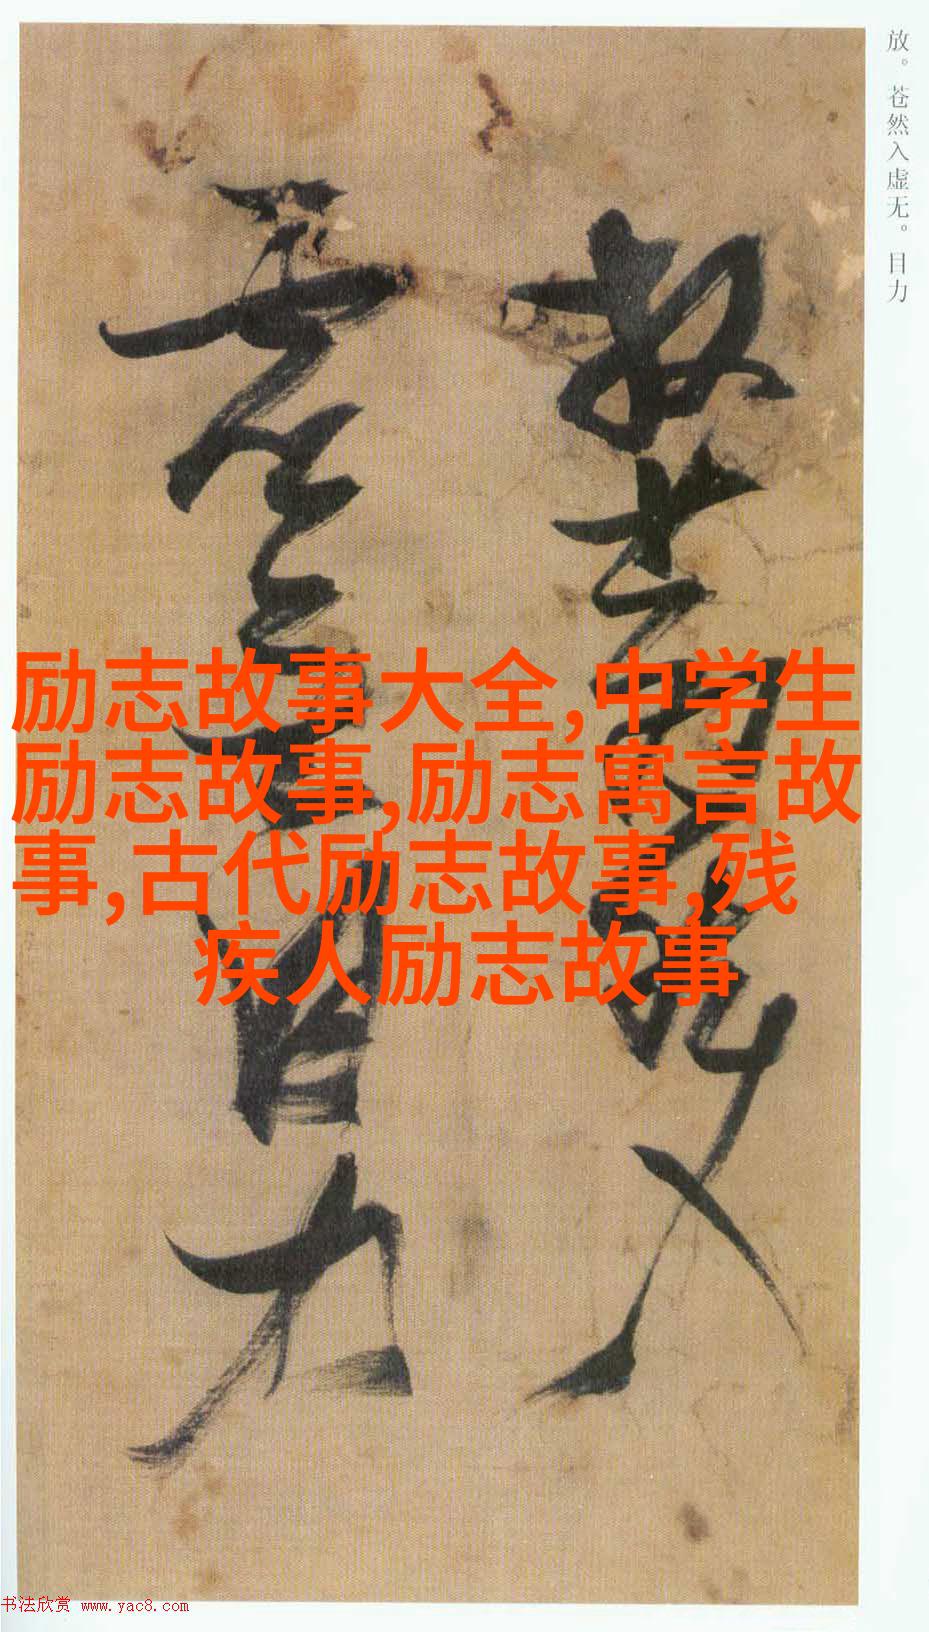 放。苍然入虚无。目力
放苍然入
虚无目力
励志故事大全,中学生
励志故事,励志寓言故
事,古代励志故事,残
疾人励志故事
书法欣赏 www.yac8.com